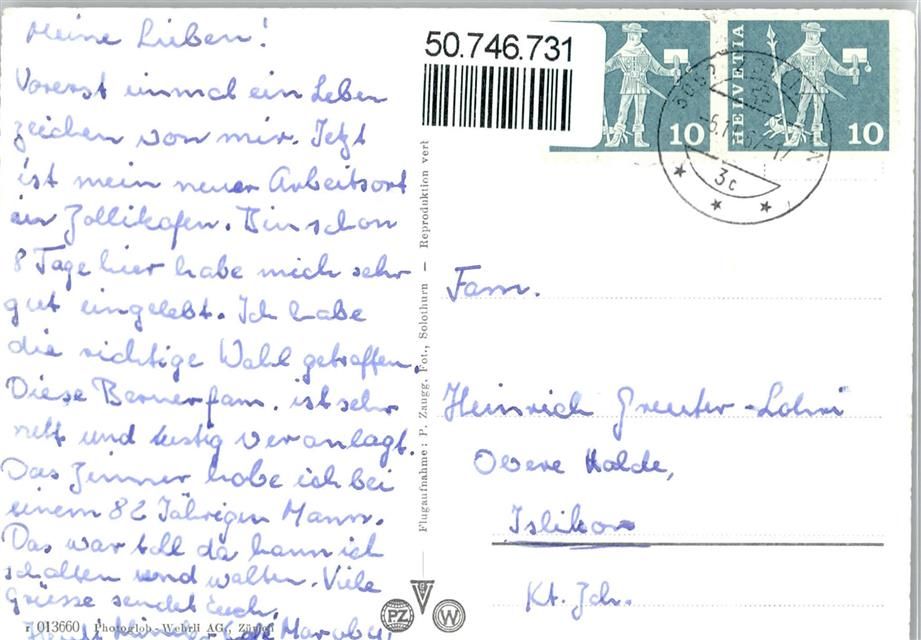 Meine Lieben!
Vorerst einmal ein Leben
zeichen von mir. Jetzt
ist mein neuer Arbeitsort
in Zollikofen. Bin schon
8 Tage hier habe mich sehr
gut eingelebt. Ich habe
die richtige Wahl getroffen.
Diese Bernerfam. ist sehr
nett und lustig veranlagt.
Das Zimmer habe ich bei
einem 82 Jährigen Mann.
Das war toll da kann ich
schalten und walten. Viele
Grüsse sendet Euch,
r 013660 Photoglob-Wehrli AG, Zürich
Flugaufnahme: P. Zaugg. Fot., Solothurn — Reproduktion verb
50.746.731
10
HELVETIA
10
3c
PZ
W
Fam.
Heinrich Greuter-Lohri
Obere Halde,
Islikon
Kt. Zch.